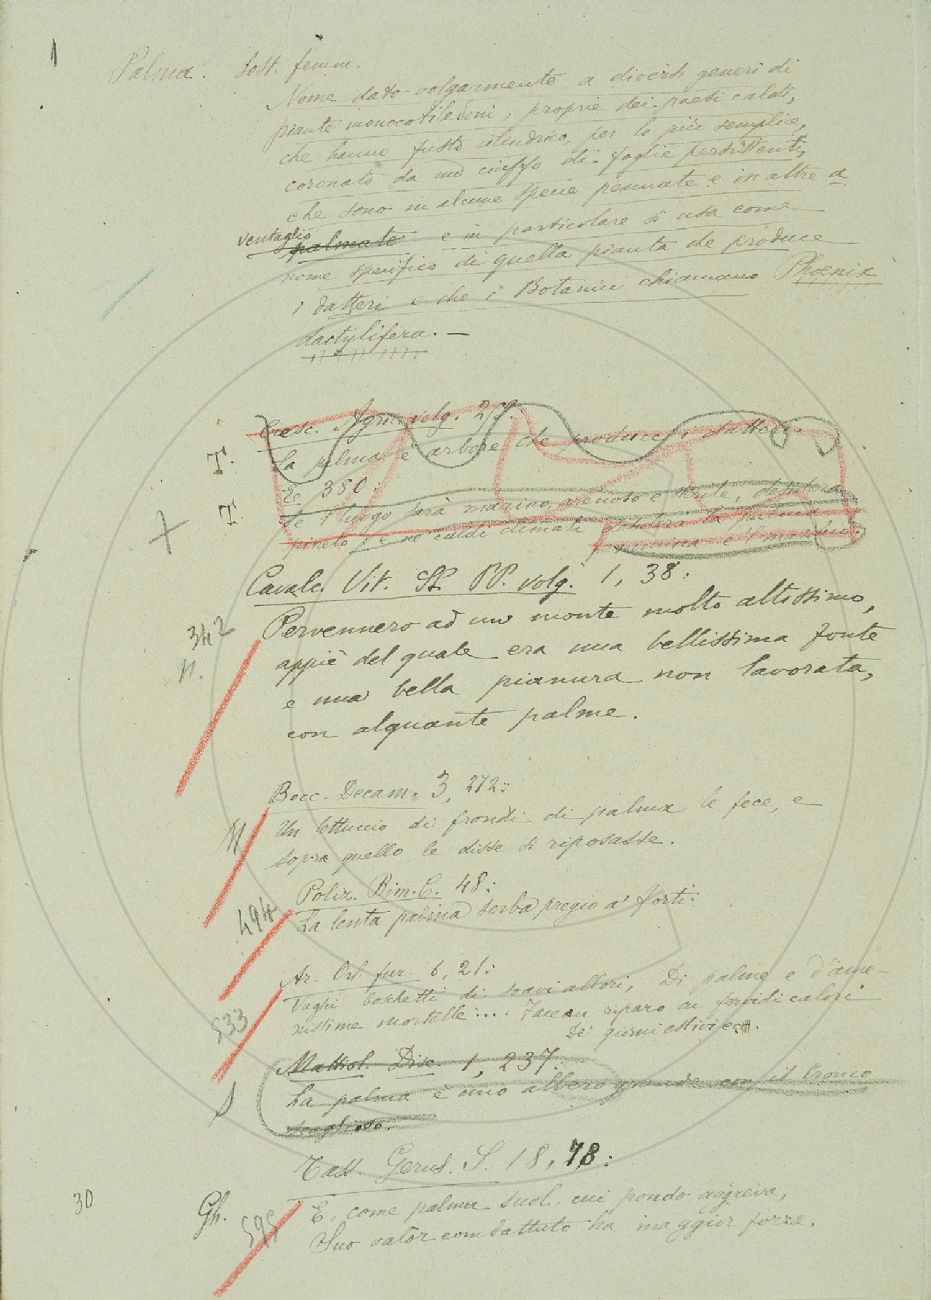 1
Palma. Sost. femm.
Nome dato volgarmente a diversi generi di
piante monocotiledoni, proprie dei paesi caldi,
che hanno fusto cilindrico, per lo più semplice,
coronato da un ciuffo di foglie persistenti,
che sono in alcune specie pennate e in altre a
ventaglio
palmate e in particolare si usa come
nome specifico di quella pianta che produce
i datteri e che i Botanici chiamano Phoenix
dactylifera. —
Cresc. Agric. volg.
T. La palma è arbore che produce i datteri.
E 380
T Se 'l luogo sarà marino, arenoso e sterile,
pineto caldi climati la palma
Cavalc. Vit. SS. PP. volg. 1, 38:
342 Pervennero ad un monte molto altissimo,
N. appiè del quale era una bellissima fonte
e una bella pianura non lavorata,
con alquante palme.
Bocc. Decam. 3, 272:
N Un lettuccio di frondi di palma le fece, e
sopra quello le disse si riposasse.
Poliz. Rim. C. 48:
494 La lenta palma serba pregio a' forti.
Ar. Orl. fur. 6, 21:
Vaghi boschetti di soavi allori, Di palme e d'ame-
533 nissime mortelle .... Facean riparo ai fervidi calori
De' giorni estivi ecc.
Mattiol. Disc. 1, 237.
La palma è uno albero grande con il tronco
Tass. Gerus. S. 18, 78:
30 Gh. 595 E, come palma suol, cui pondo aggreva,
Suo valor combattuto ha maggior forza.